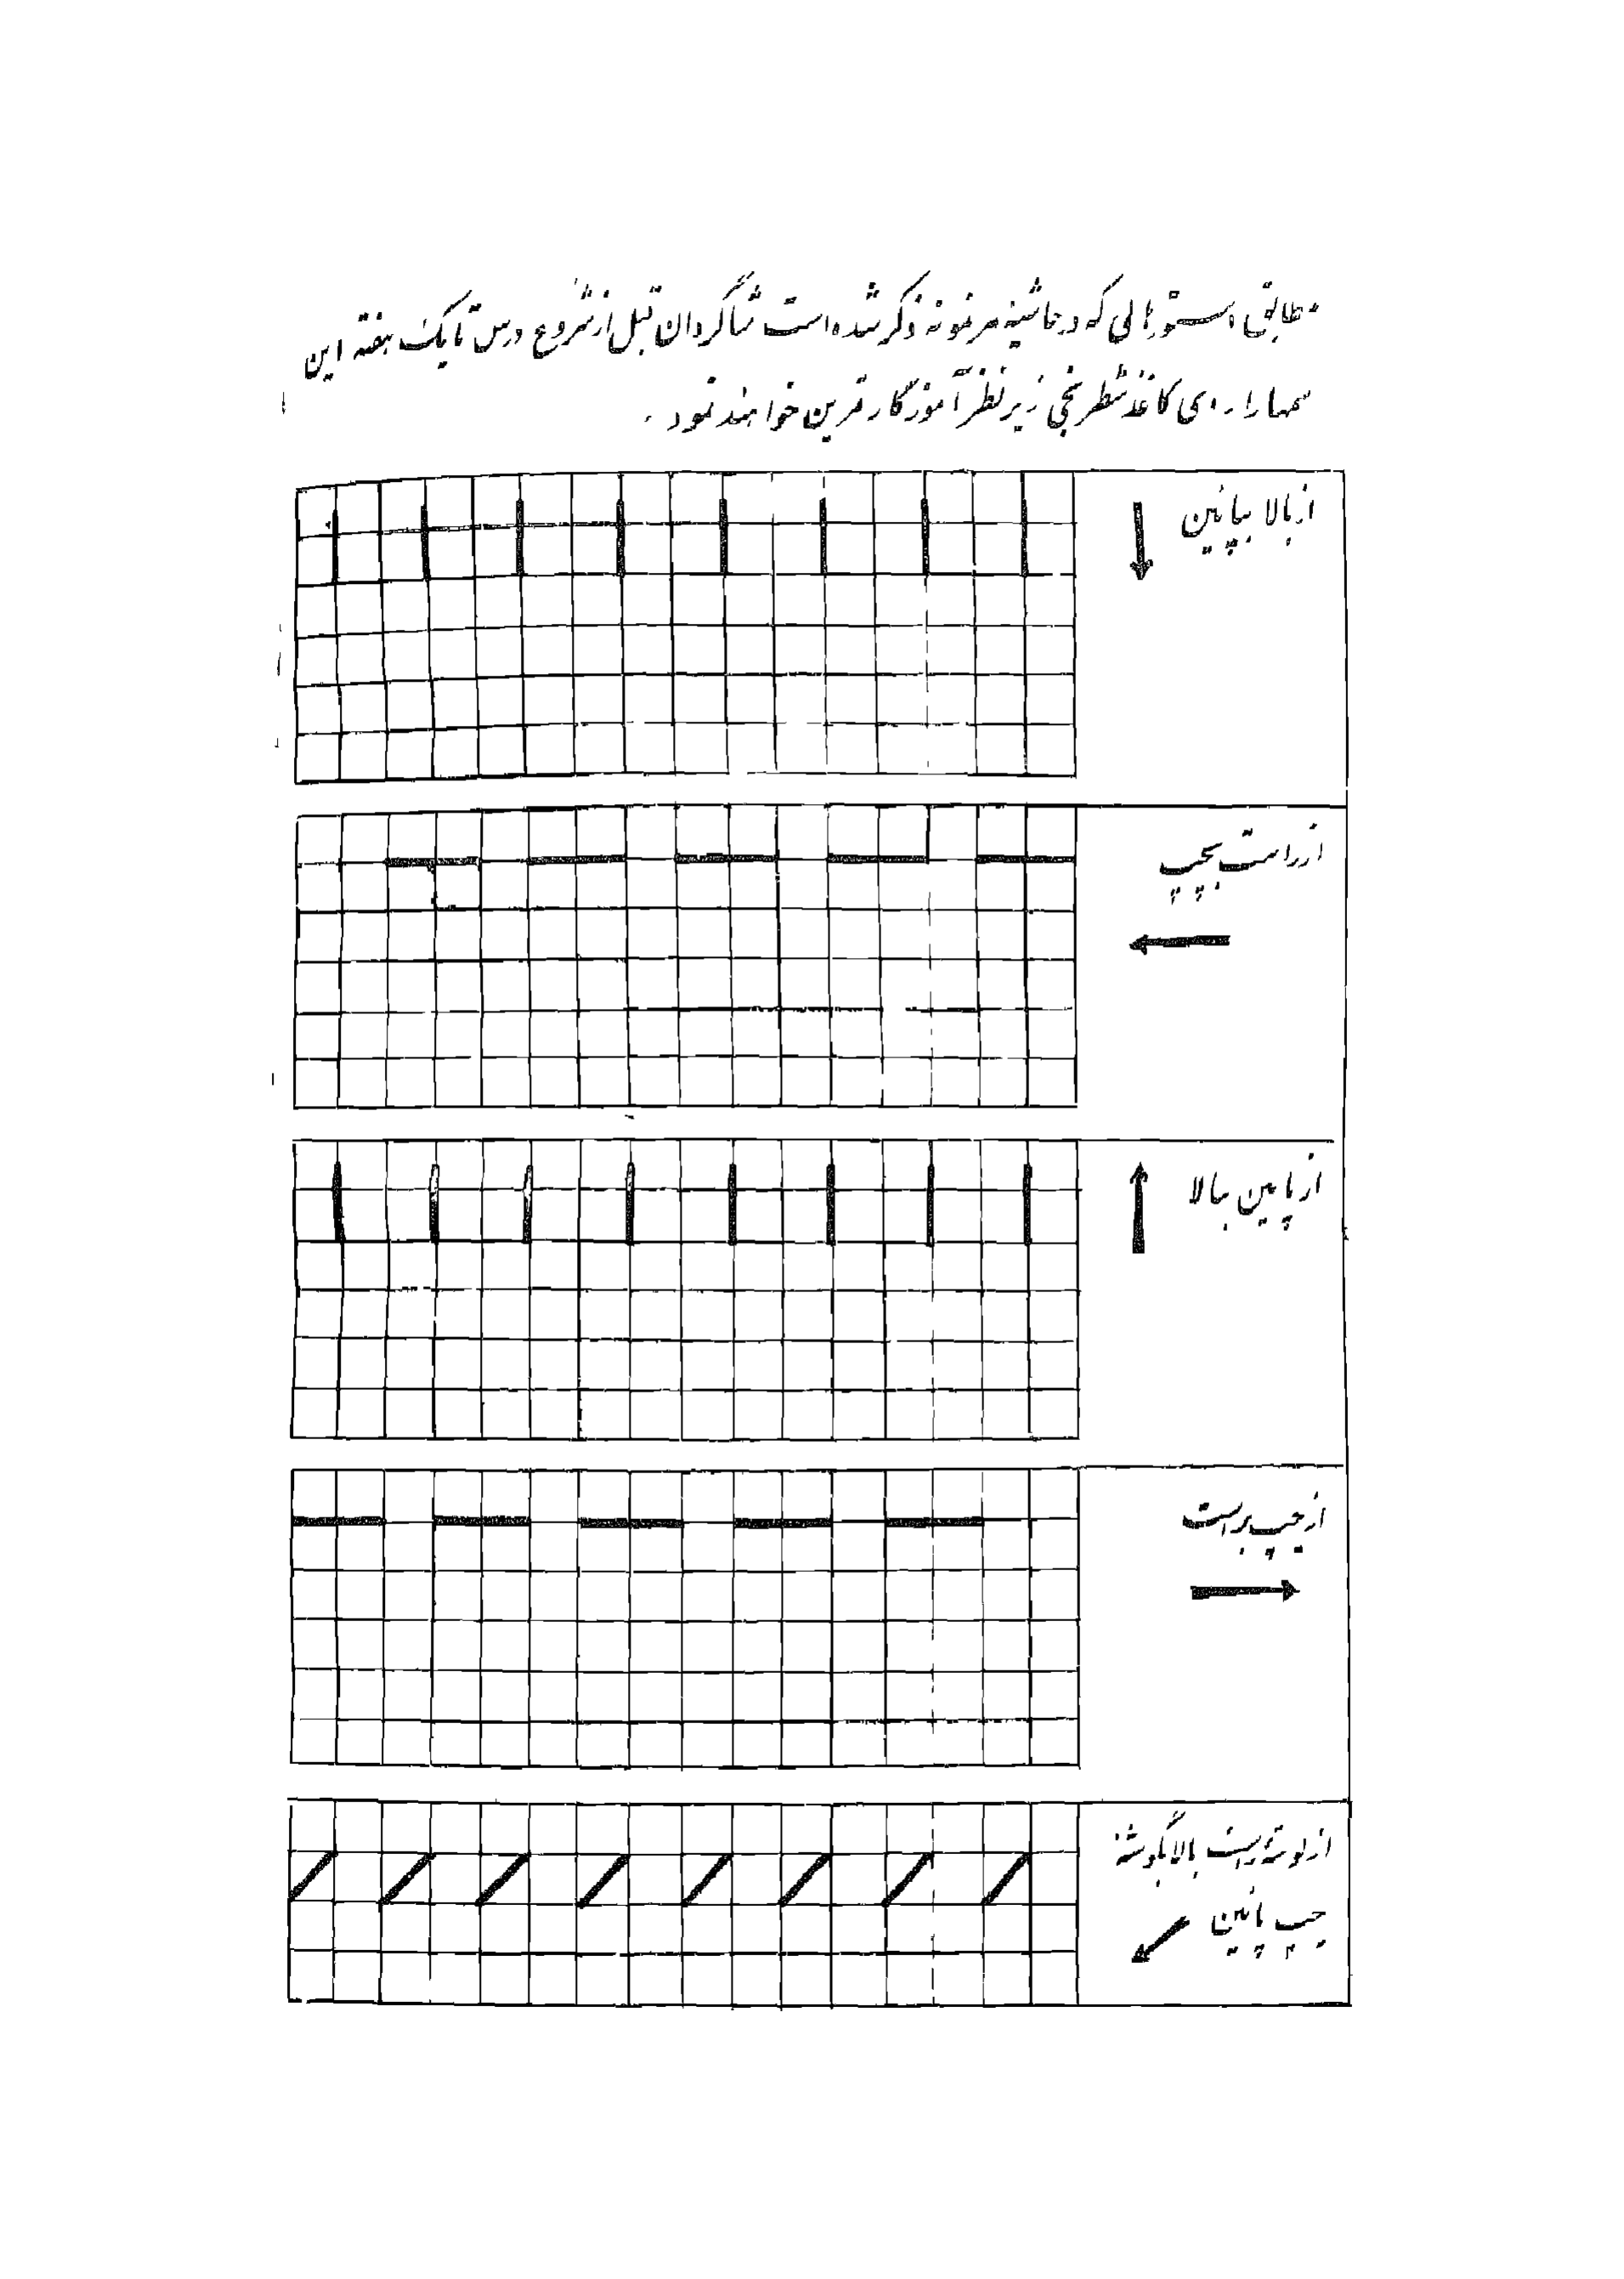 مطابق دستورهایی که در حاشیه هر نمونه ذکر شده است شاگردان قبل از شروع درس تا یک هفته این
را روی کاغذ شطرنجی زیر نظر آموزگار تمرین خواهند نمود .
از بالا بپایین
از راست بچپ
از پایین ببالا
از چپ براست
از گوشه راست بالا بگوشه
چپ پائین